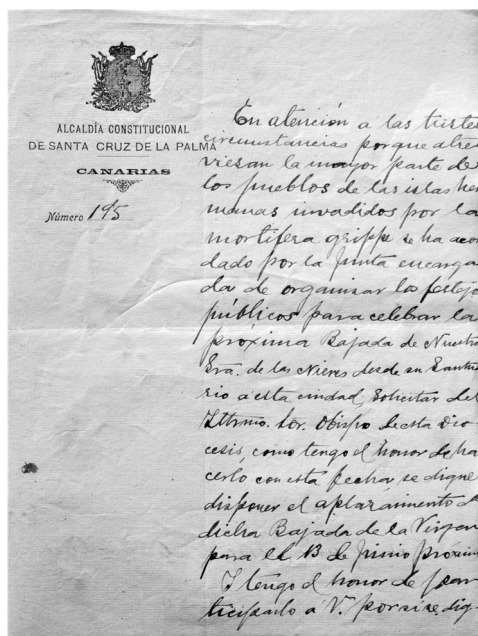 ALCALDÍA CONSTITUCIONAL
DE SANTA CRUZ DE LA PALMA
CANARIAS
Número 195
En atención a las tristes
circumstancias porque atra
viesan la mayor parte de
los pueblos de las islas her
manas invadidos por la
mortífera grippe se ha acor
dado por la Junta encarga
da de organizar los festejo
públicos para celebrar la
próxima Bajada de Nuestra
Sra. de las Nieves desde su Santua
rio a esta ciudad, Solicitar del
Iltrmo. Sor. Obispo de esta Dió
cesis, como tengo el honor de ha
cerlo con esta fecha, se digne
disponer el aplazamiento d
dicha Bajada de la Virgen
para el 13 de Junio próximo
Y tengo el honor de par
ticiparlo á V. por si se dig-